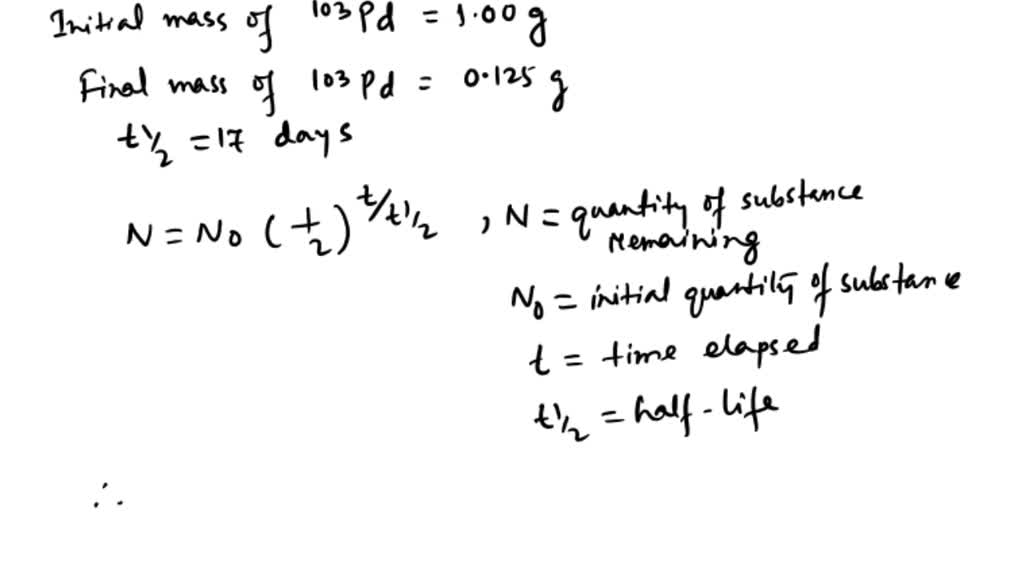 Initial mass of 103 Pd = 1.00 g
Final mass of 103 Pd = 0.125 g
t1/2 = 17 days
N = N0 (1/2)^t/t1/2 , N = quantity of substance
remaining
N0 = initial quantity of substance
t = time elapsed
t1/2 = half-life
∴